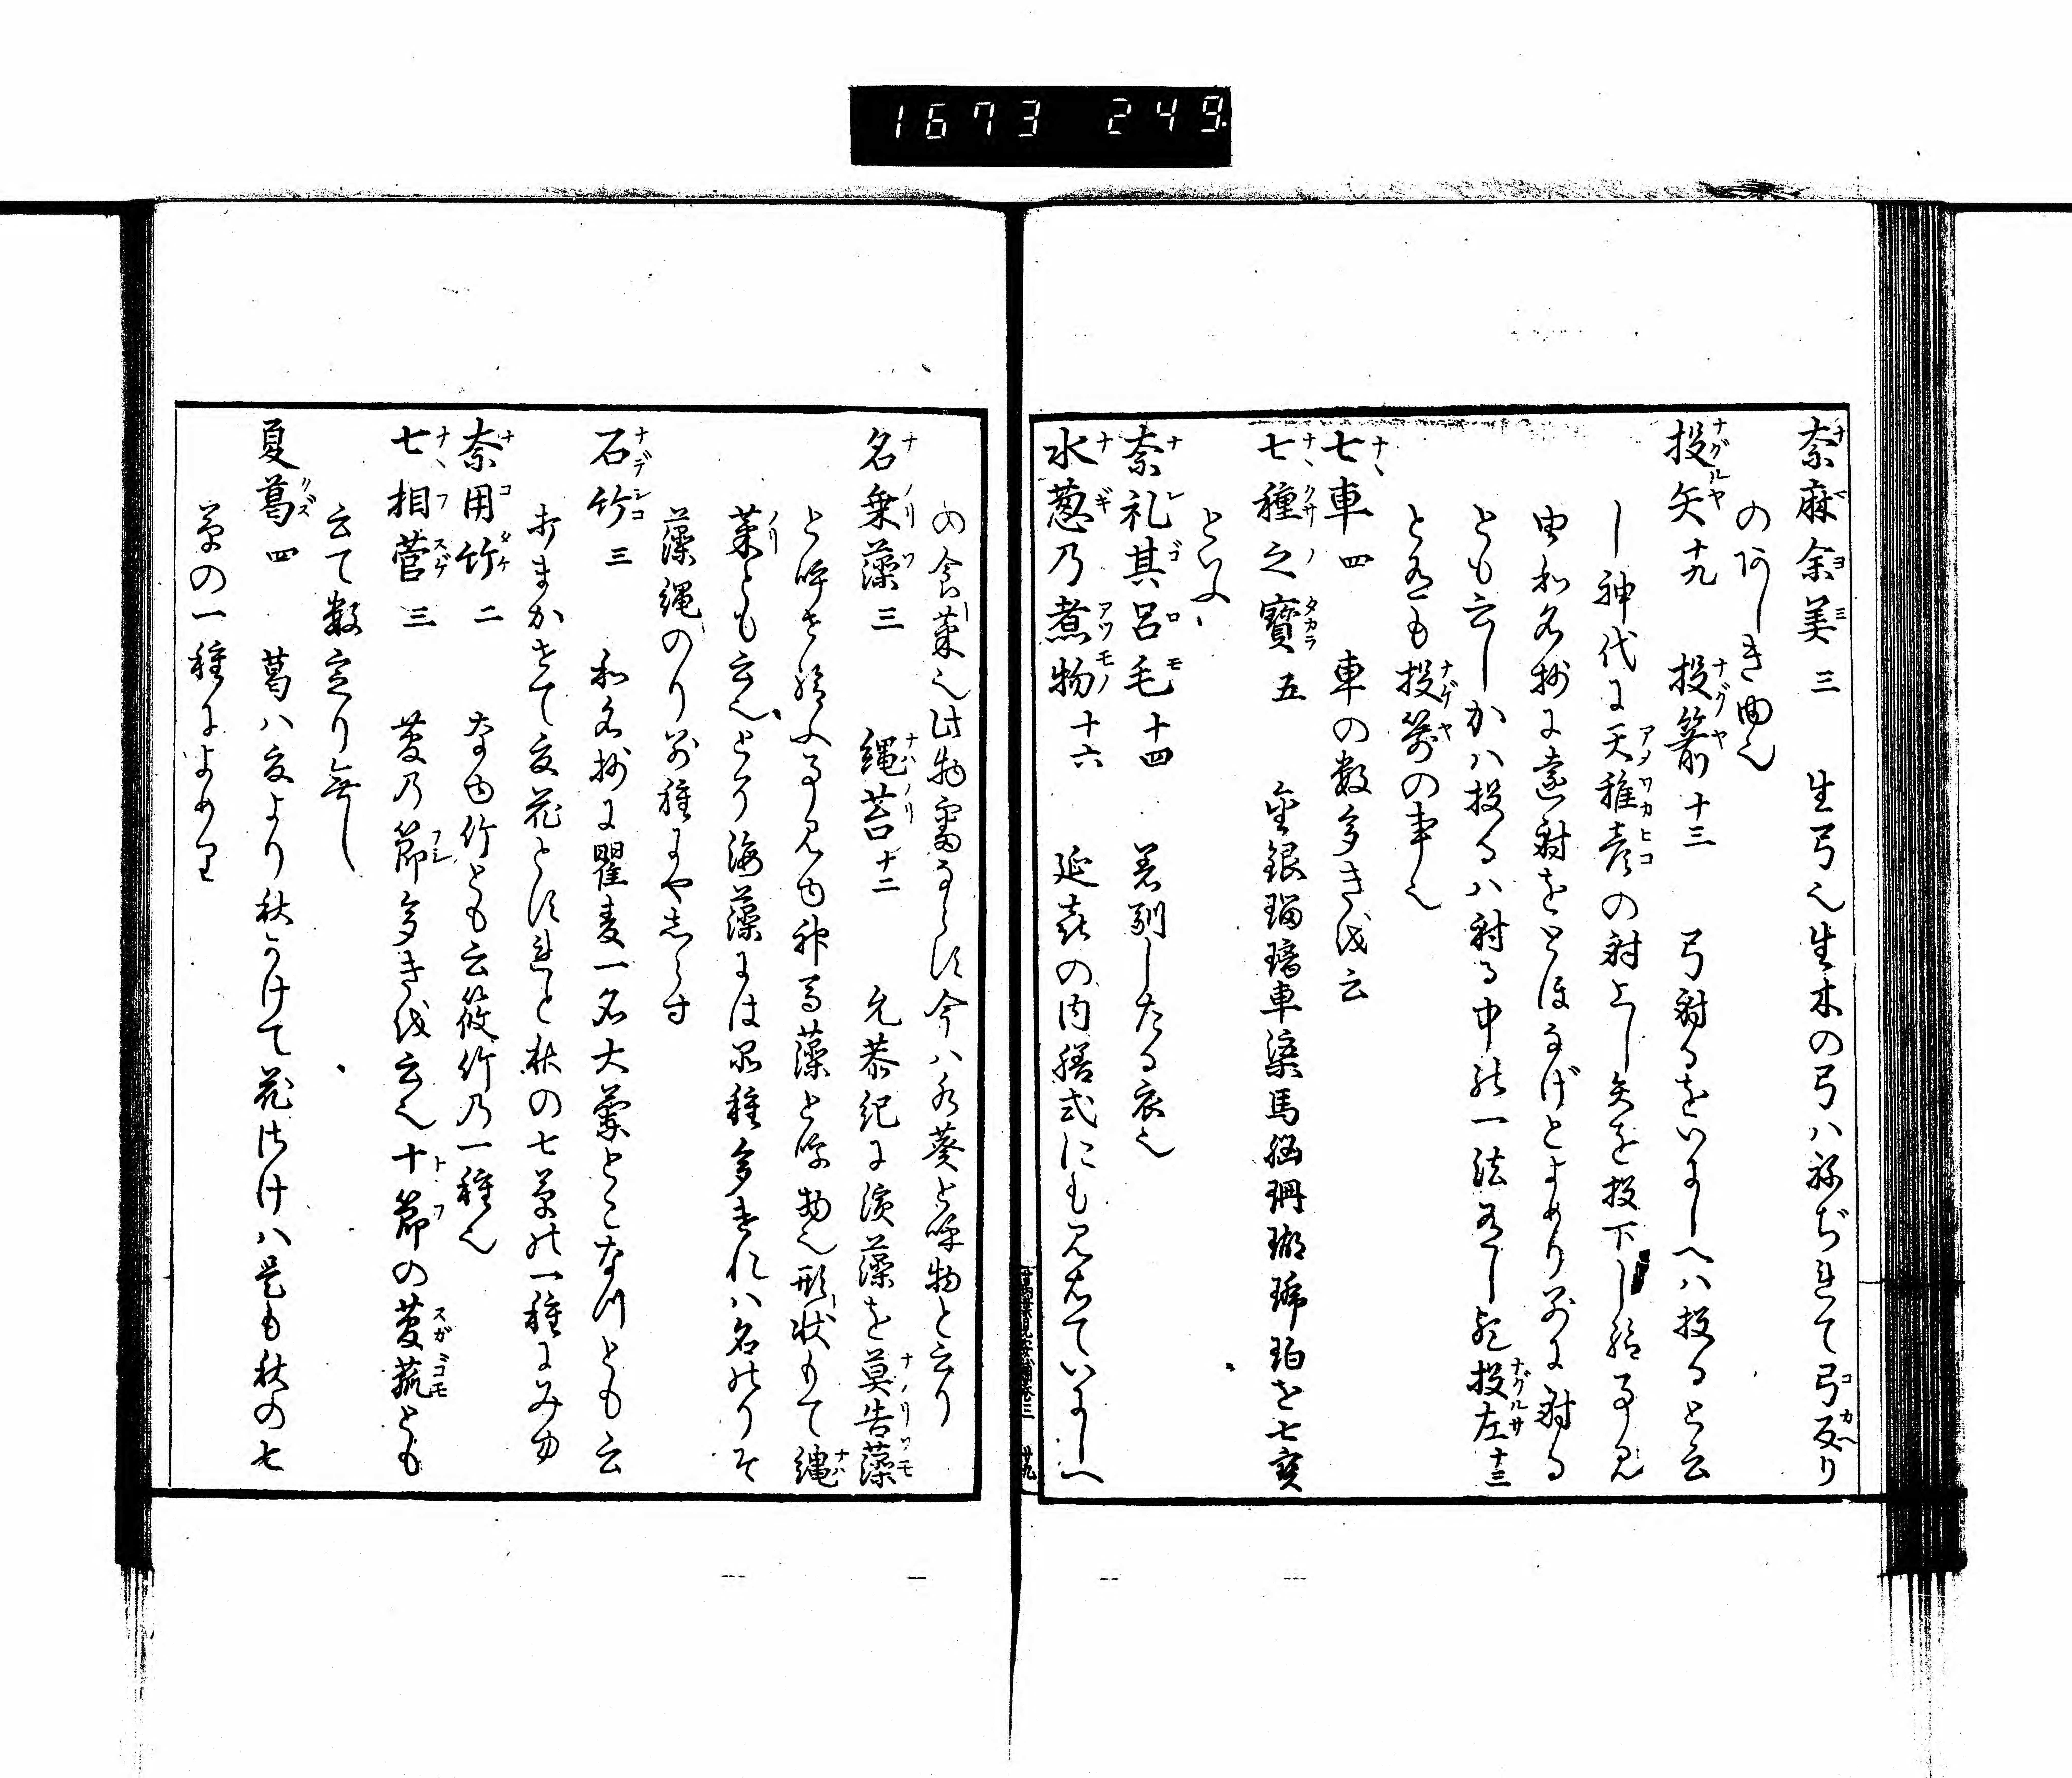 1673 249
奈麻余美 三 生弓也生木の弓ハねぢれて弓反り
の阿しき由也
投矢 十九 投箭 十三 弓射るをいにしへハ投ると云
し神代に天稚彦の射上し矢を投下し給ふ事見
由和名抄に遠射をとほなげとよめり別に射る
とも云しかハ投るハ射る中の一法有し歟 投左 十三
と有も投箭の事也
七車 四 車の数多きを云
七種之寶 五 金銀瑠璃車渠馬脳珊瑚琥珀を七宝
といふ
奈礼其呂毛 十四 着馴したる衣也
水葱乃煮物 十六 延喜の内膳式にも見えていにしへ
の食菜也此物習ならす今ハ水葵と呼物と云り
名乗藻 三 縄苔 十二 允恭紀に濱藻を莫告藻
と呼せ給ふ事見ゆ神馬藻と字物也形状もて縄
菜とも云也とり海藻には品種多けれハ名のりそ
藻縄のり別種にやしらす
石竹 三 和名抄に瞿麦一名大蘭とこなつとも云
およかせて夏花とすれと秋の七草の一種にみゆ
奈用竹 二 なゆ竹とも云筱竹乃一種也
七相菅 三 菅乃節多きを云也十節の菅菰とも
云て数定り無し
夏葛 四 葛ハ夏より秋かけて花さけハ是も秋の七
草の一種によめり